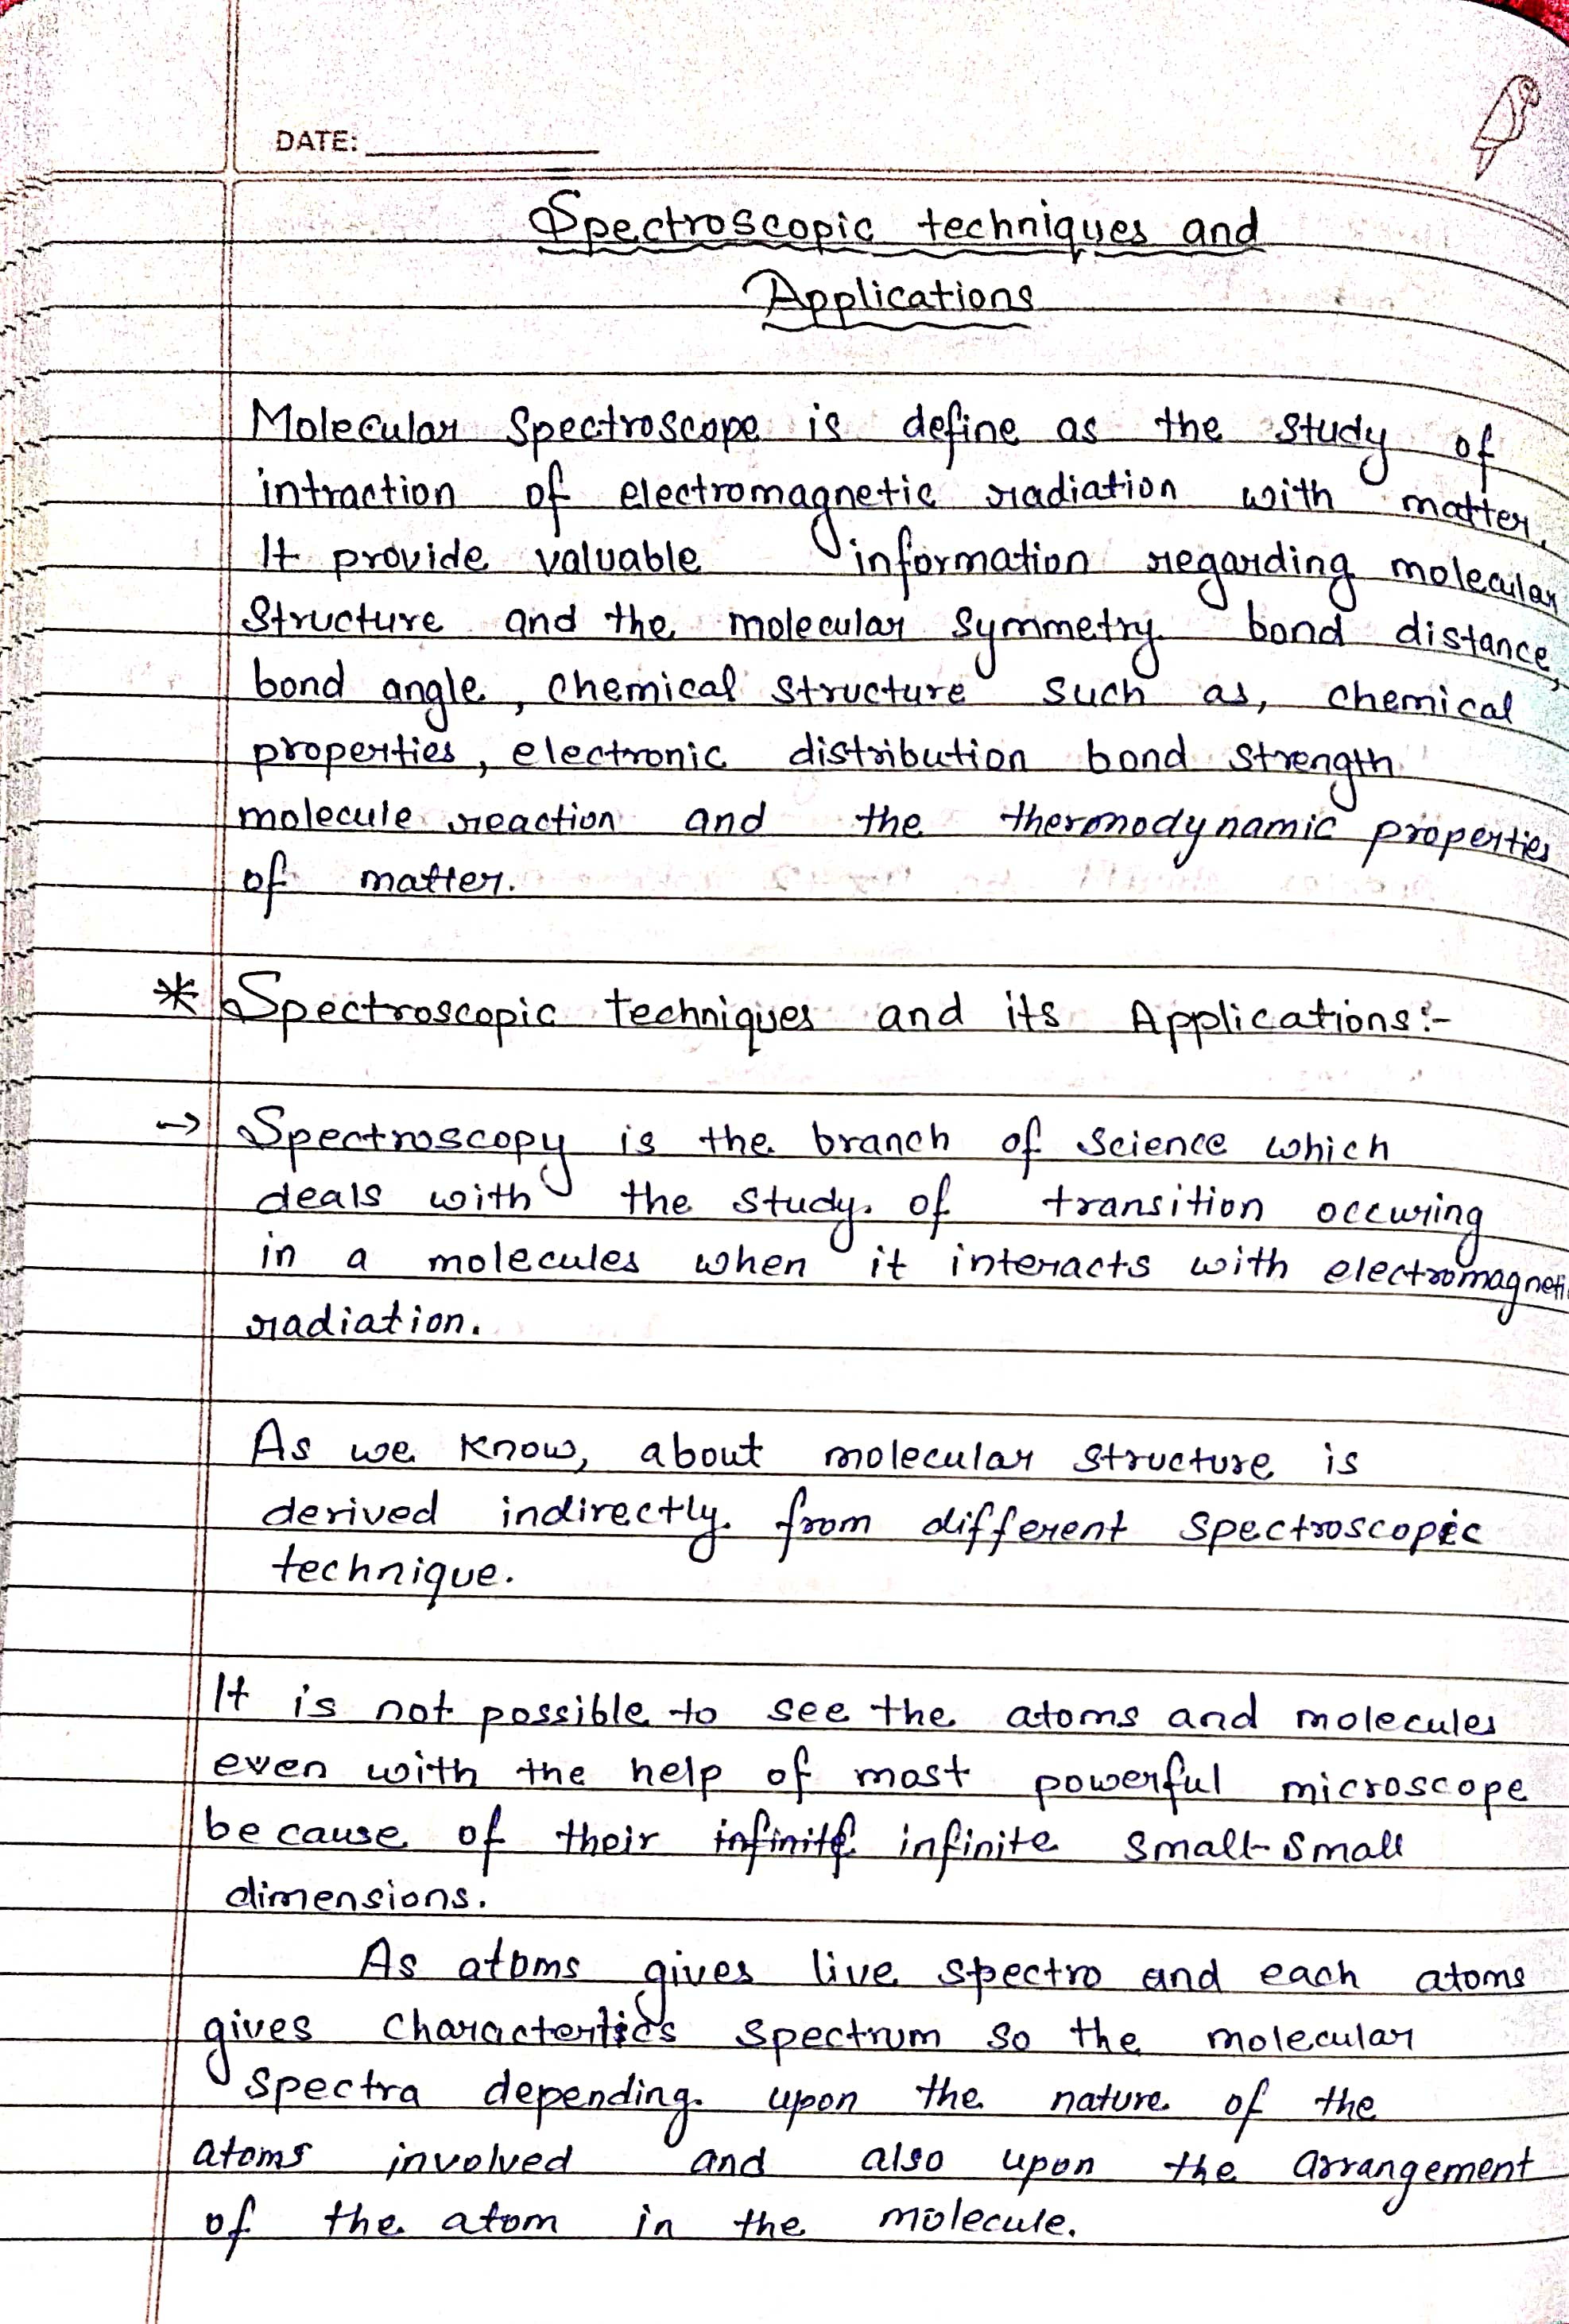 DATE:
Spectroscopic techniques and
Applications
Molecular Spectroscope is define as the study of
intraction of electromagnetic radiation with matter.
It provide valuable information regarding molecular
Structure and the molecular symmetry bond distance,
bond angle, chemical structure such as, chemical
properties, electronic distribution bond strength
molecule reaction and the thermodynamic properties
of matter.
* Spectroscopic techniques and its Applications:-
→ Spectroscopy is the branch of science which
deals with the study of transition occuring
in a molecules when it interacts with electromagneti
radiation.
As we know, about molecular structure is
derived indirectly from different spectroscopic
technique.
It is not possible to see the atoms and molecules
even with the help of most powerful microscope
because of their infinite infinite small-small
dimensions.
As atoms gives live spectro and each atoms
gives charactertics spectrum so the molecular
spectra depending upon the nature of the
atoms involved and also upon the arrangement
of the atom in the molecule.